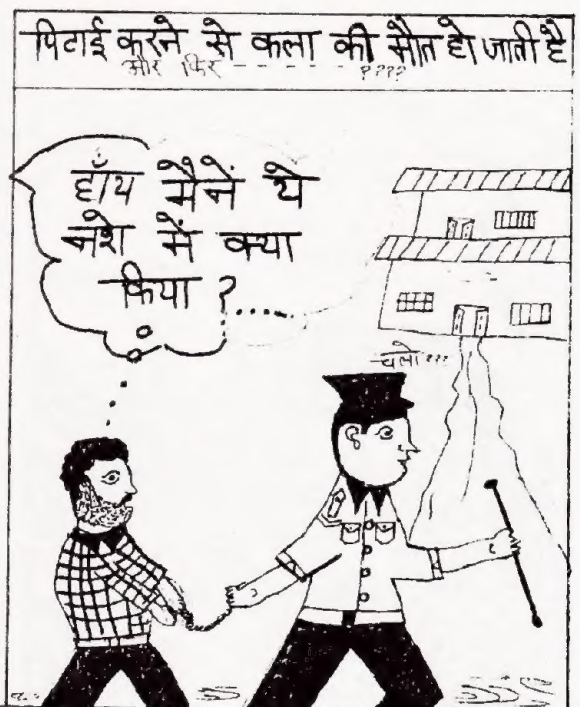 पिटाई करने से कला की मौत हो जाती है
और फिर - - - - - - ????
हाँय मैनें ये
नशे में क्या
किया ?
चलो ???